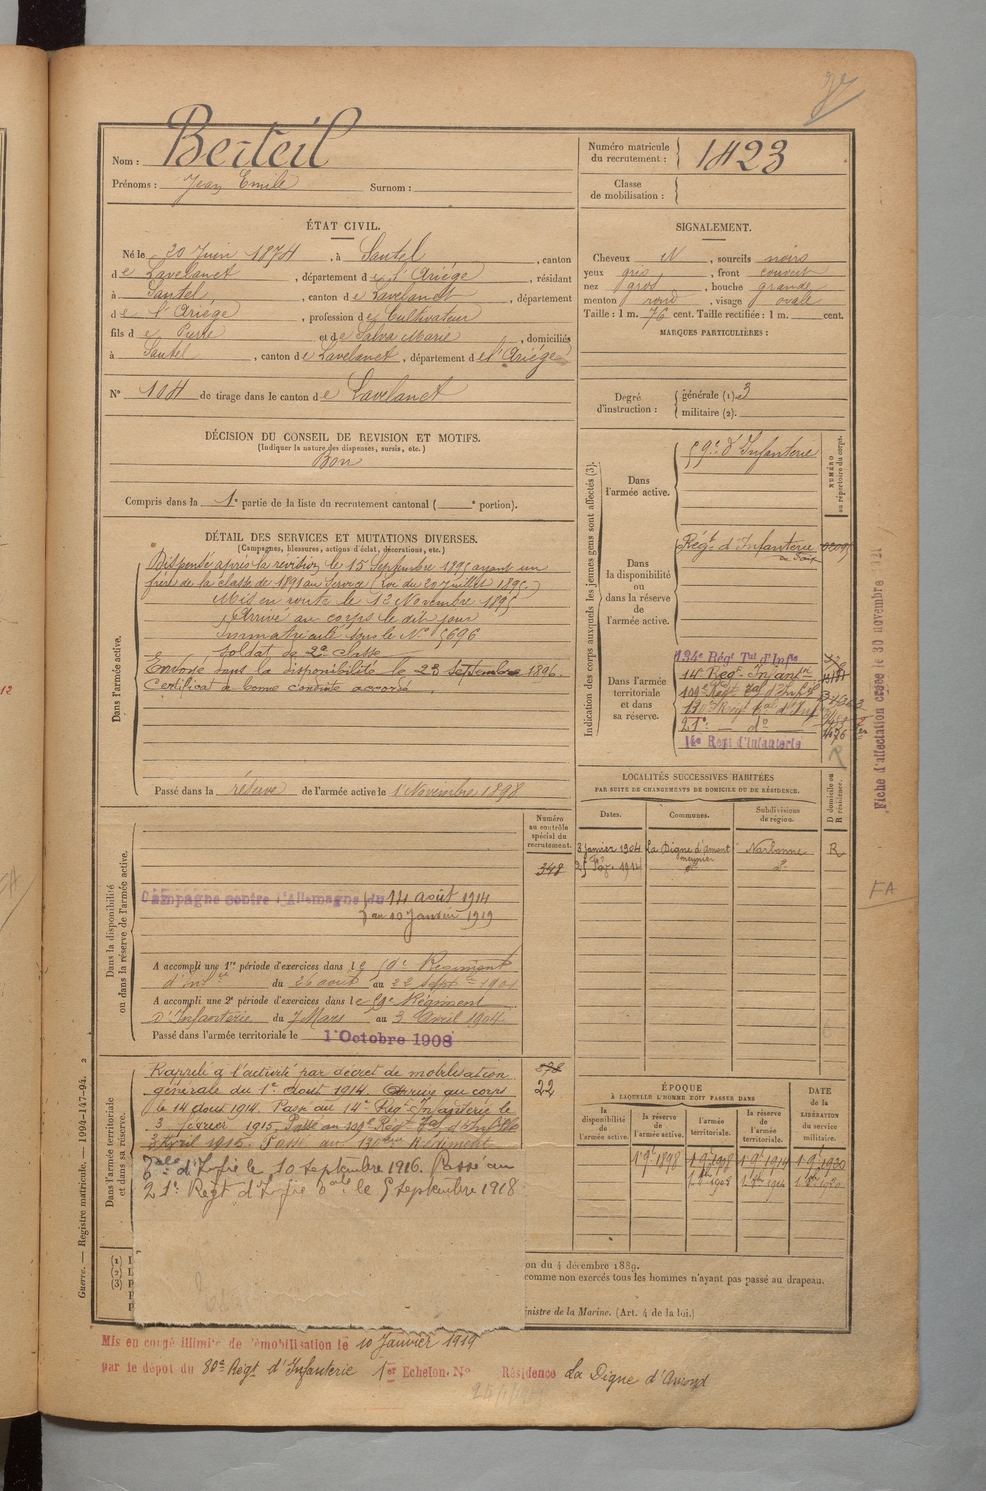 Nom : Berteil
Prénoms : Jean Emile Surnom :
Numéro matricule du recrutement : 1423
Classe de mobilisation :
ÉTAT CIVIL.
Né le 20 Juin 1874, à Sautel, canton
de Lavelanet, département de l'Ariége, résidant
à Sautel, canton de Lavelanet, département
de l'Ariége, profession de Cultivateur
fils de Pierre et de Salva Marie, domiciliés
à Sautel, canton de Lavelanet, département de l'Ariége
N° 104 de tirage dans le canton de Lavelanet
SIGNALEMENT.
Cheveux N, sourcils noirs
yeux gris, front couvert
nez gros, bouche grande
menton rond, visage ovale
Taille : 1 m. 76 cent. Taille rectifiée : 1 m. cent.
MARQUES PARTICULIÈRES :
Degré d'instruction :
générale (1) 3
militaire (2).
DÉCISION DU CONSEIL DE REVISION ET MOTIFS.
(Indiquer la nature des dispenses, sursis, etc.)
Bon
Compris dans la 1e partie de la liste du recrutement cantonal ( e portion).
DÉTAIL DES SERVICES ET MUTATIONS DIVERSES.
(Campagnes, blessures, actions d'éclat, décorations, etc.)
Dans l'armée active.
Dispensé après la revision le 15 Septembre 1895 ayant un
frère de la classe de 1891 au Service (Loi du 20 Juillet 1895)
Mis en route le 12 Novembre 1895
Arrivé au corps le dit jour
Immatriculé sous le N° 5696
Soldat de 2e classe
Envoyé dans la disponibilité le 23 Septembre 1896.
Certificat de bonne conduite accordé
Passé dans la réserve de l'armée active le 1 Novembre 1898
Indication des corps auxquels les jeunes gens sont affectés (3).
NUMÉRO au répertoire du corps.
Dans l'armée active.
59e d'Infanterie
Dans la disponibilité ou dans la réserve de l'armée active.
Régt d'Infanterie
de Foix
Dans l'armée territoriale et dans sa réserve.
134e Régt Tal d'Infie
14e Régt Infantie
109e Régt Tal d'Infie
130e Régt Tal d'Inf
21e — do
14e Regt d'Infanterie
R
Fiche d'affectation créée le 30 novembre 1921
LOCALITÉS SUCCESSIVES HABITÉES
PAR SUITE DE CHANGEMENTS DE DOMICILE OU DE RÉSIDENCE.
Dates. Communes. Subdivisions de région. D domicile ou R résidence.
3 Janvier 1904 La Digne d'Amont Narbonne R
FA
Numéro au contrôle spécial du recrutement.
348
Dans la disponibilité ou dans la réserve de l'armée active.
Campagne contre l'Allemagne du 14 août 1914
au 10 Janvier 1919
A accompli une 1re période d'exercices dans le 59e Régiment
d'Infie du 26 août au 22 Septbre 1901
A accompli une 2e période d'exercices dans le 59e Régiment
d'Infanterie du 7 Mars au 3 Avril 1904
Passé dans l'armée territoriale le 1 Octobre 1908
Dans l'armée territoriale et dans sa réserve.
22
Rappelé à l'activité par décret de mobilisation
générale du 1er Août 1914. Arrivé au corps
le 14 Août 1914. Passé au 14e Régt Infanterie le
3 février 1915. Passé au 109e Régt Tal d'Infie le
3 Avril 1915. Passé au 130e Régiment
Tale d'Infie le 10 septembre 1916. Passé au
21e Regt d'Infie le 5 septembre 1918
ÉPOQUE
À LAQUELLE L'HOMME DOIT PASSER DANS
la disponibilité de l'armée active. la réserve de l'armée active. l'armée territoriale. la réserve de l'armée territoriale.
DATE de la LIBÉRATION du service militaire.
1 9e 1898 1 9e 1908 1 9e 1914 1 9e 1920
(1)
(2)
(3)
on du 4 décembre 1889.
comme non exercés tous les hommes n'ayant pas passé au drapeau.
inistre de la Marine. (Art. 4 de la loi.)
Guerre. — Registre matricule. — 1994-147-94. 2
Mis en congé illimité de démobilisation le 10 Janvier 1919
par le dépôt du 80e Régt d'Infanterie 1er Echelon. N° Résidence La Digne d'Amont